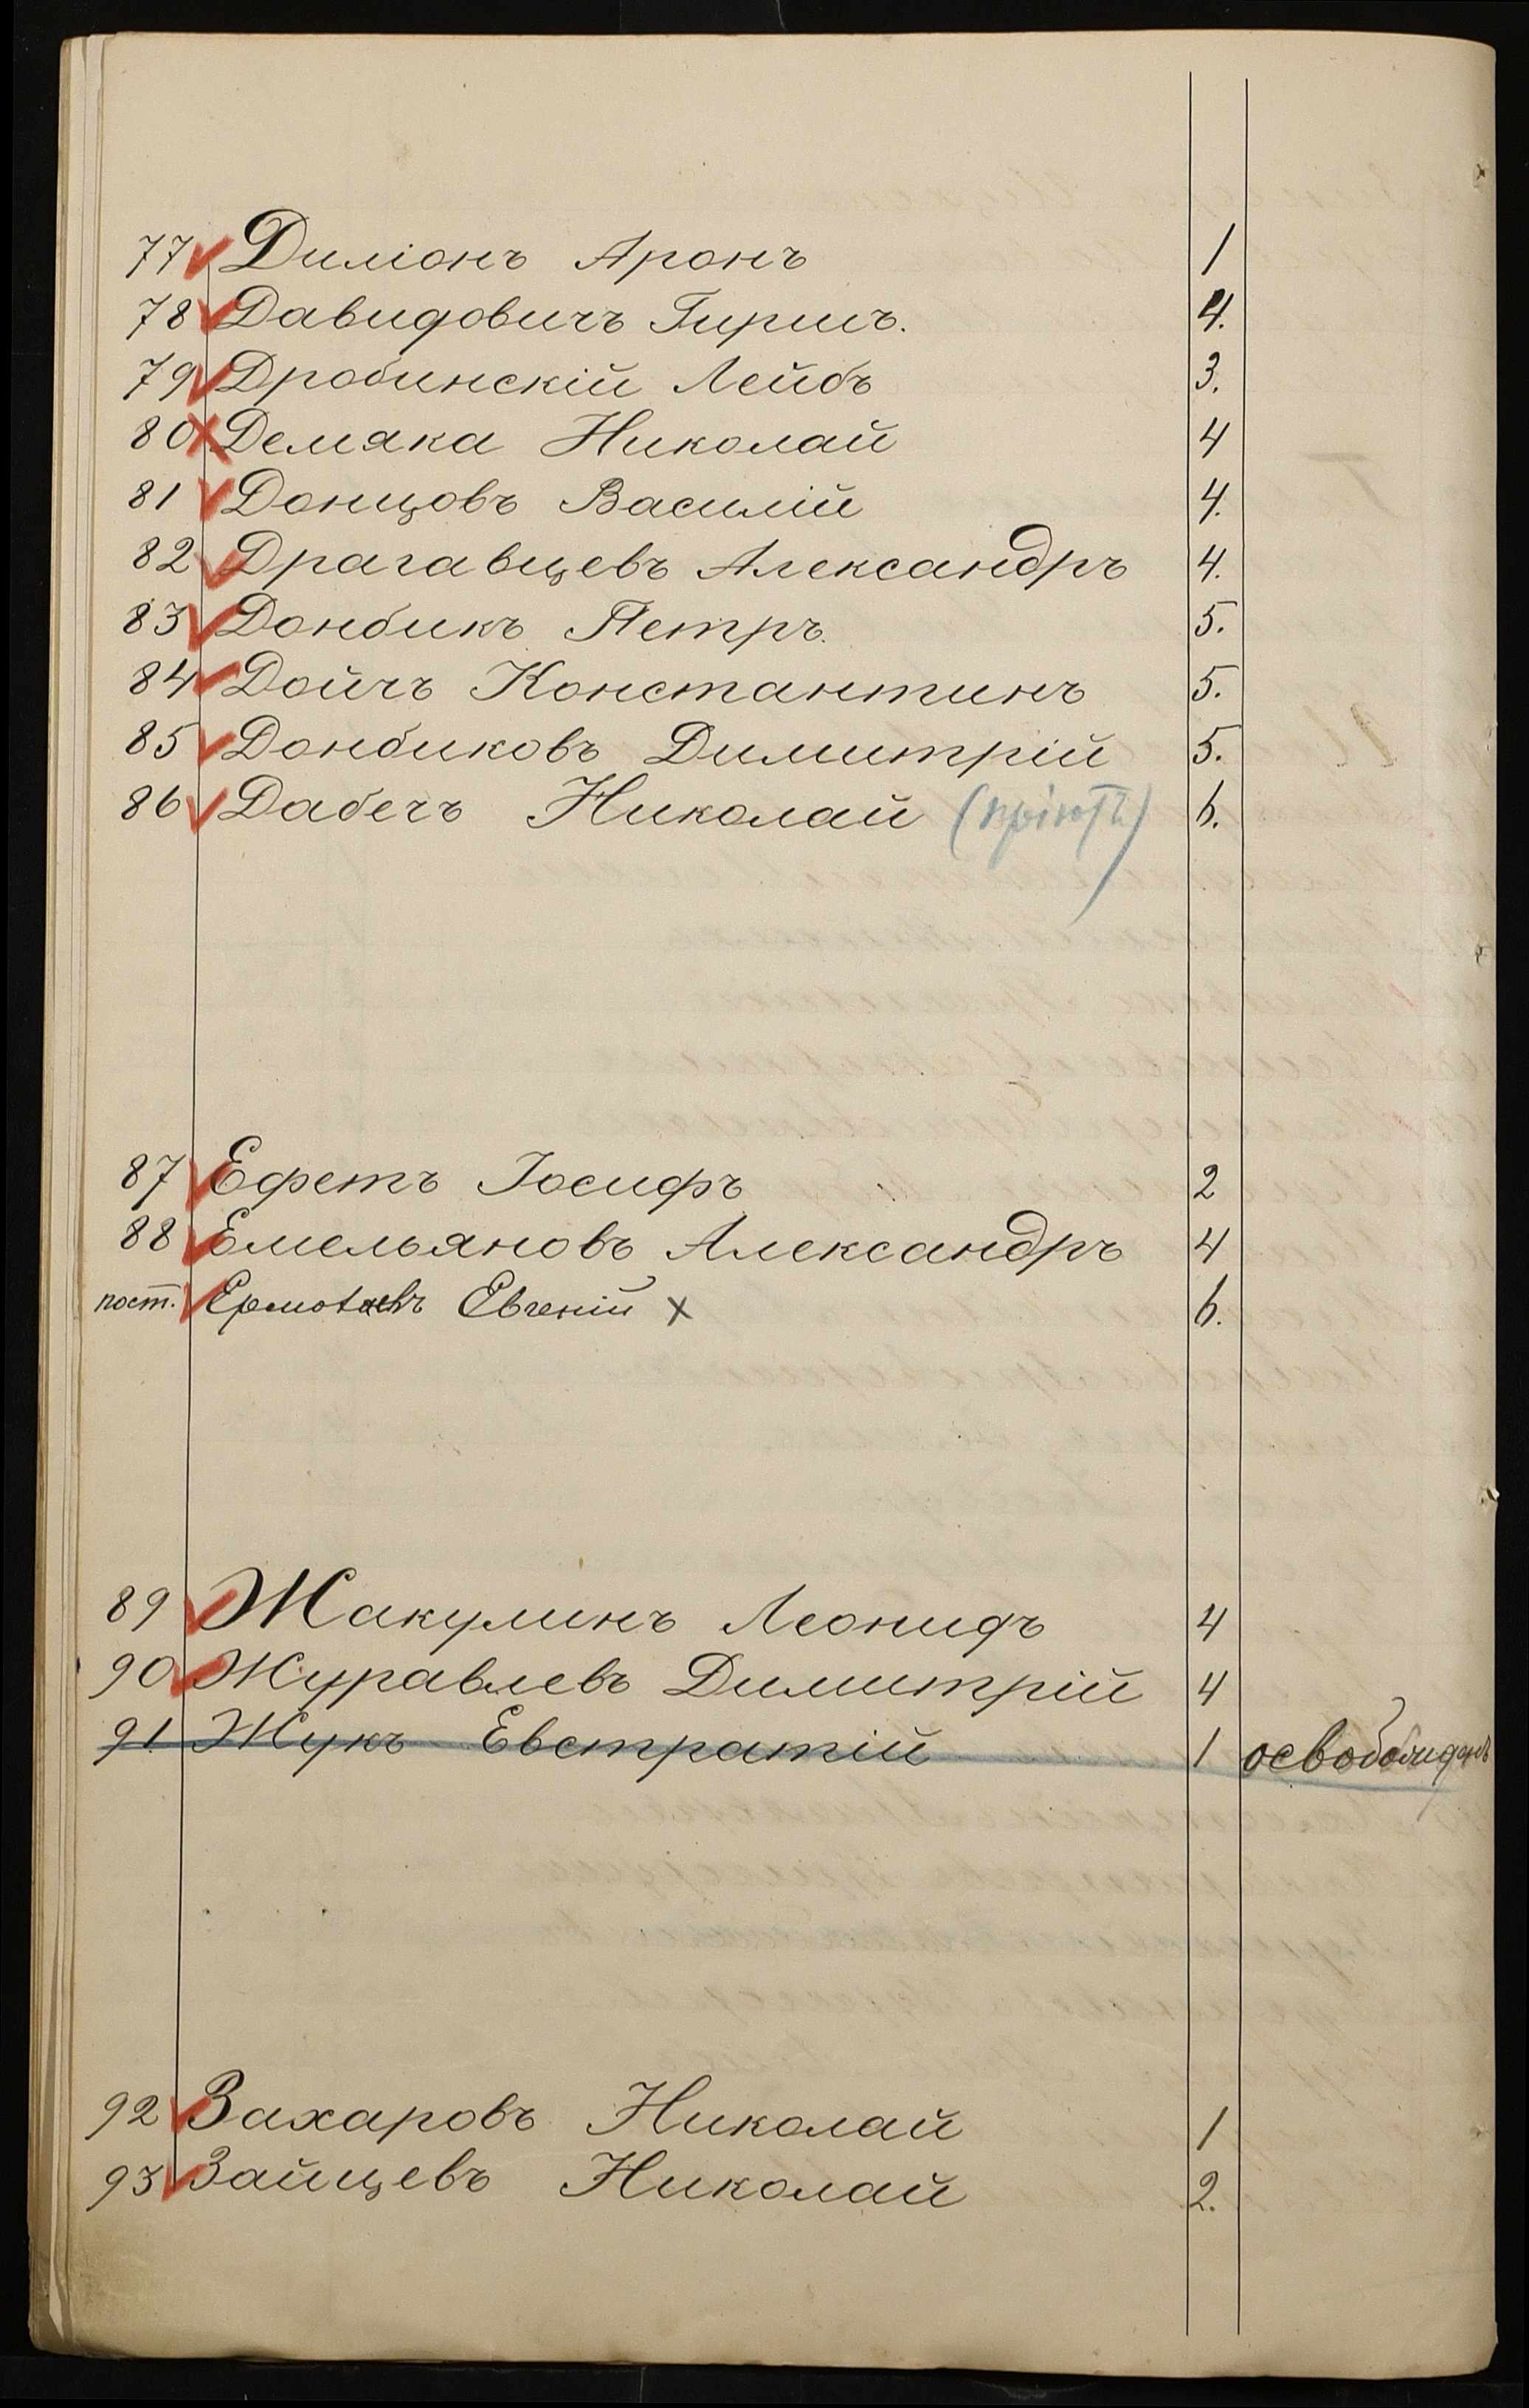 77 Диліонъ Аронъ 1
78 Давидовичъ Гиршъ. 4.
79 Дробинскій Лейбъ 3.
80 Демяка Николай 4
81 Донцовъ Василій 4.
82 Драгавцевъ Александръ 4.
83 Донбикъ Петръ. 5.
84 Дойчъ Константинъ 5.
85 Донбиковъ Димитрій 5.
86 Дабечъ Николай (пріютъ) 6.
87 Ефетъ Іосифъ 2
88 Емельяновъ Александръ 4
пост. Евгеній х 6.
89 Жакулинъ Леонидъ 4
90 Журавлевъ Димитрій 4
91. Жукъ Евстратій 1
92 Захаровъ Николай 1
93 Зайцевъ Николай 2.